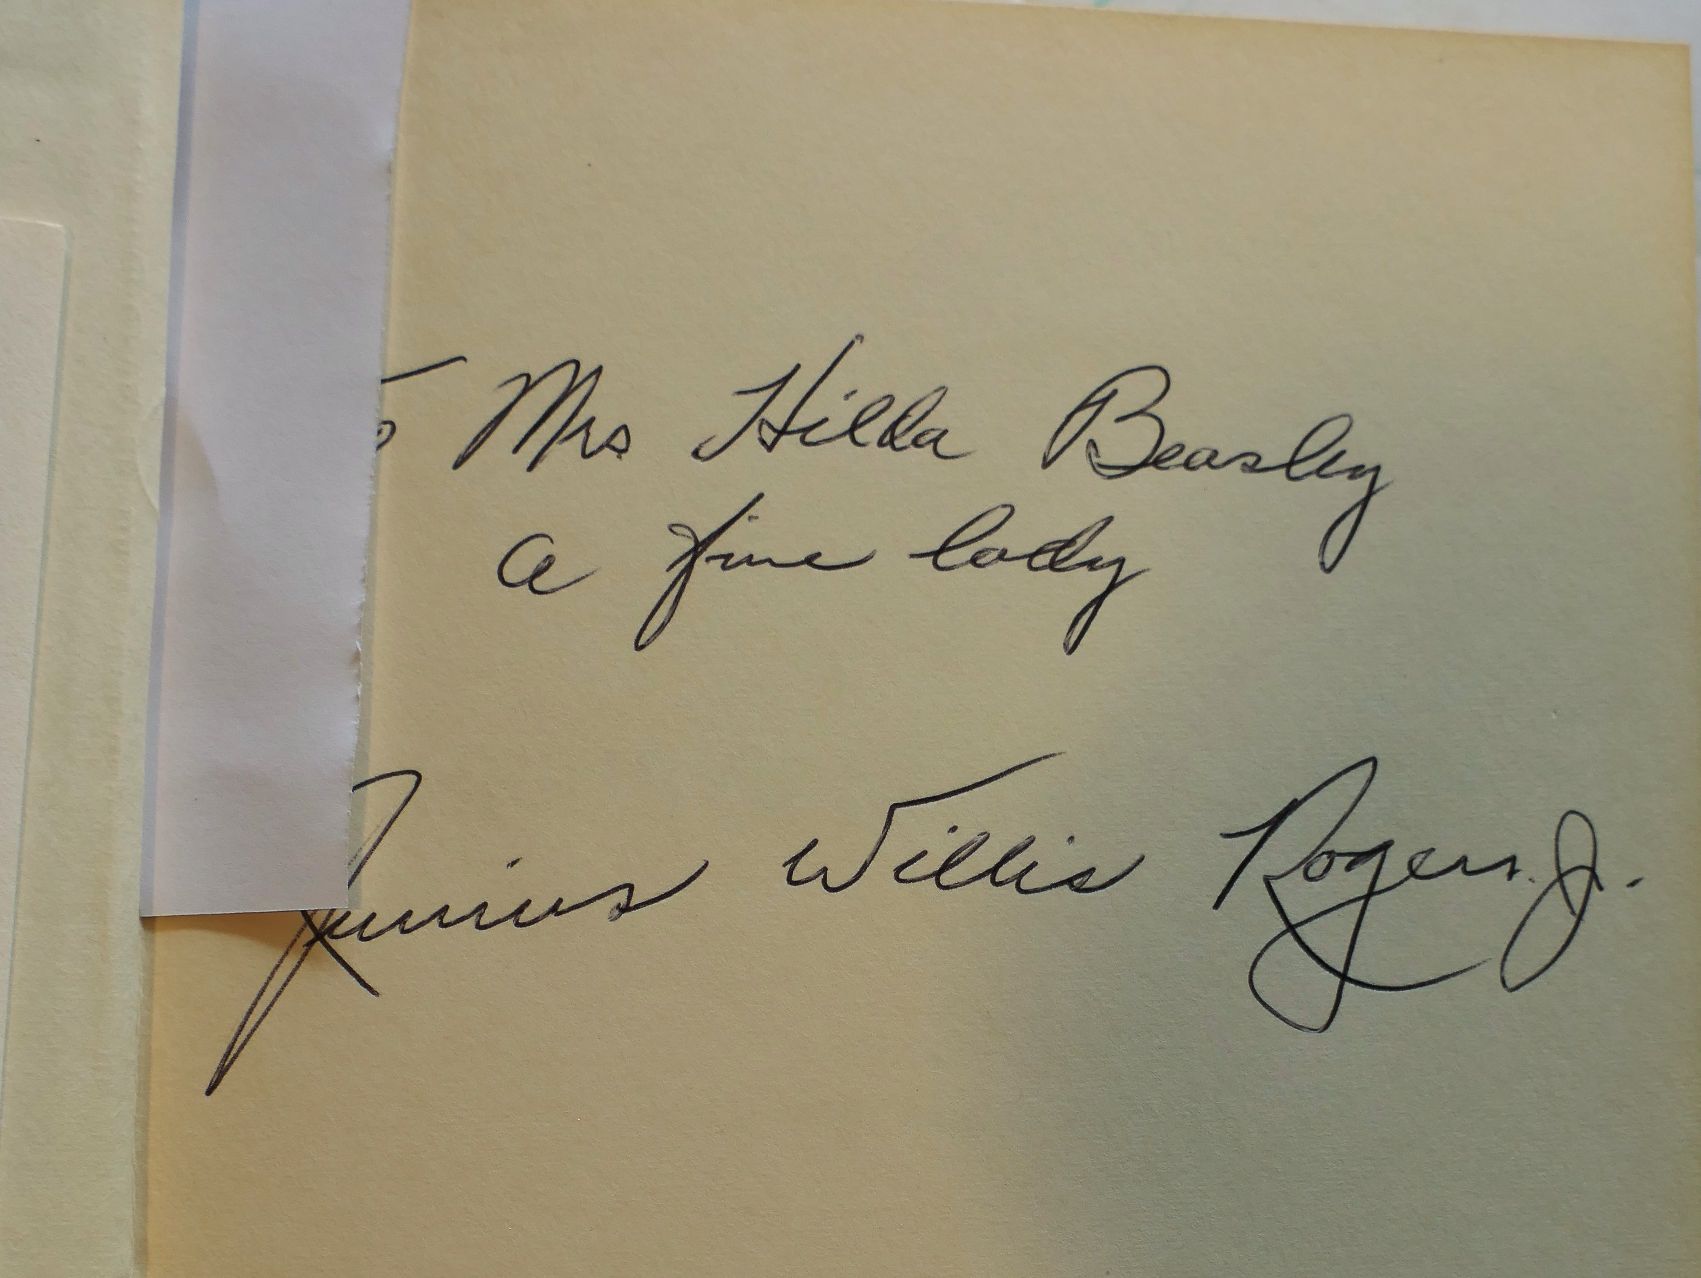 o Mrs Hilda Beasley
a fine lady
Junius Willis Rogers. J.